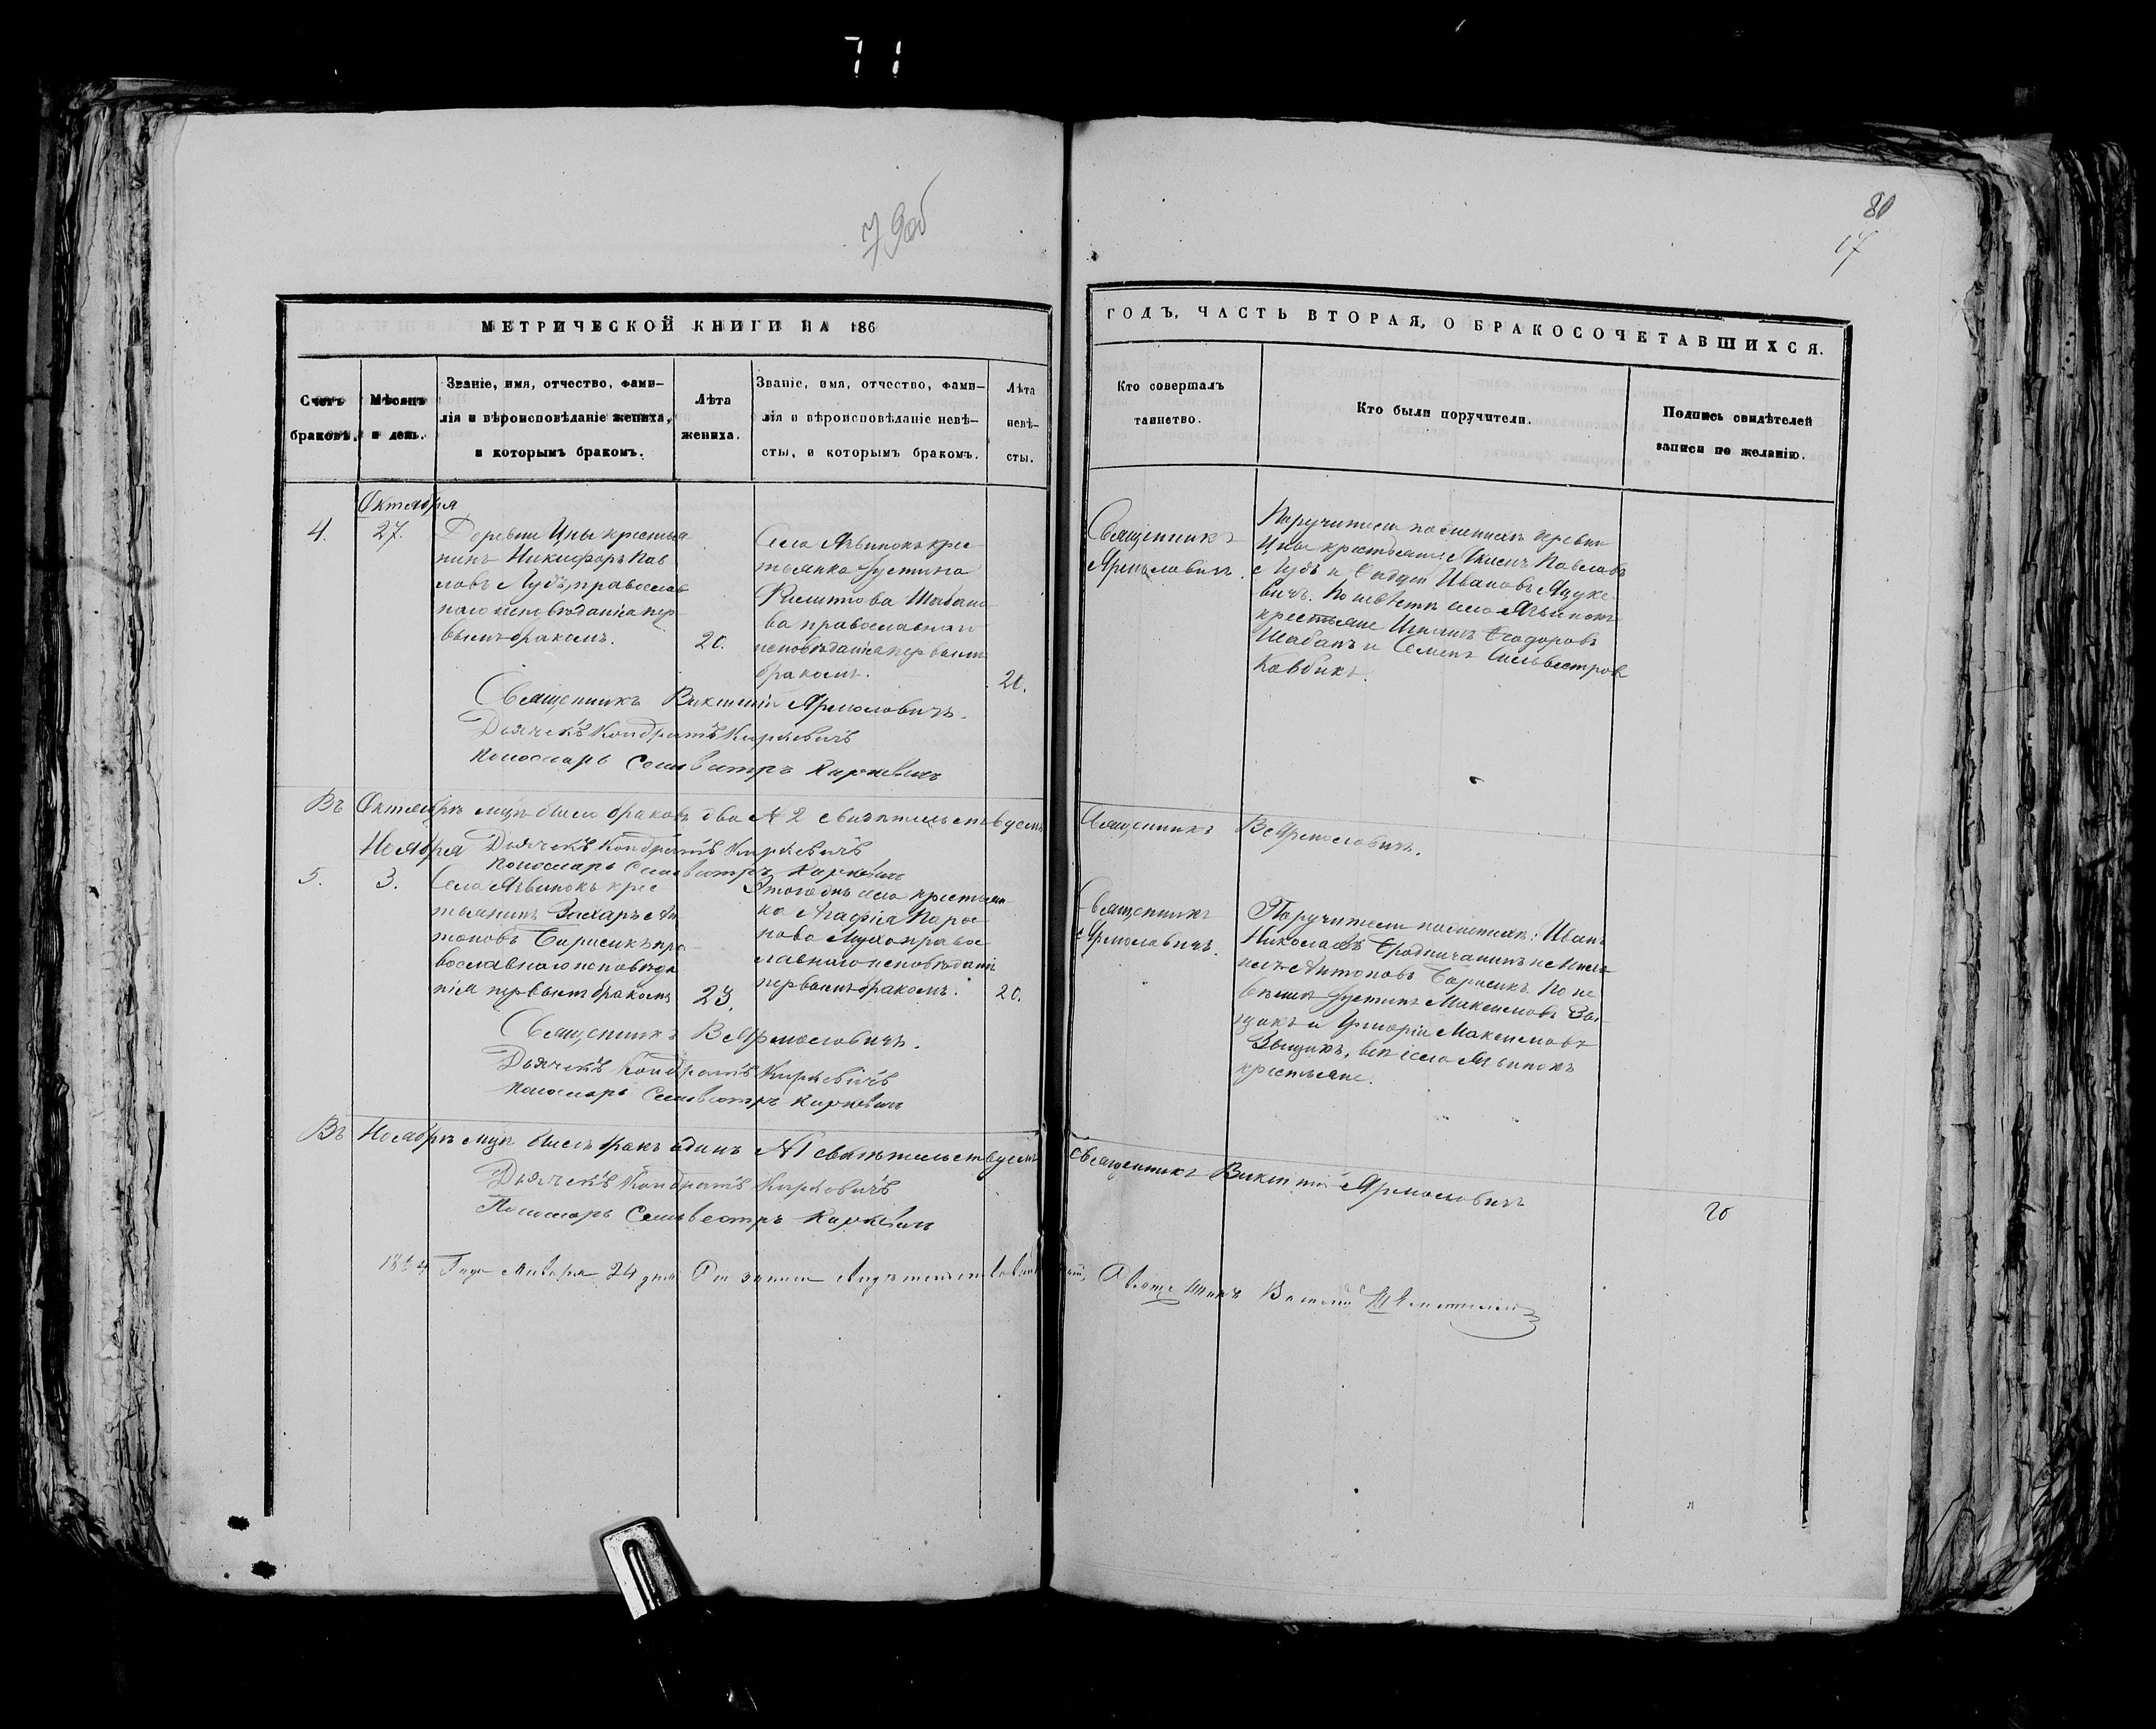 71
79об
80
17
МЕТРИЧЕСКОЙ КНИГИ НА 186
Счетъ
браковъ.
Мѣсяцъ
и день.
Званіе, имя, отчество, фами-
лія и вѣроисповѣданіе жениха,
и которымъ бракомъ.
Лѣта
жениха.
Званіе, имя, отчество, фами-
лія и вѣроисповѣданіе невѣ-
сты, и которымъ бракомъ.
Лѣта
невѣ-
сты.
ГОДЪ, ЧАСТЬ ВТОРАЯ, О БРАКОСОЧЕТАВШИХСЯ.
Кто совершалъ
таинство.
Кто были поручители.
Подпись свидѣтелей
записи по желанію.
Октября
4.
27.
Деревни Цны крестья
нинъ Никифоръ Пав
ловъ Лудъ, православ
наго исповѣданія пер
вымъ бракомъ.
20.
Села Язвинокъ крес
тьянка Іустина
Шабано
ва православнаго
исповѣданія первымъ
бракомъ.
20.
Священникъ
Ярмоловичъ.
Поручители по женихѣ деревни
Цны крестьяне Павловъ
Лудъ и Ивановъ
вичъ. По невѣстѣ села Язвинокъ
крестьяне Игнатъ Ѳеодоровъ
Шабанъ и Семенъ Сильвестровъ
Ковбикъ.
Священникъ Викентій Ярмоловичъ.
Дьячекъ Кондратъ Киркевичъ
Пономарь Селивестръ Киркевичъ
Въ Октябрѣ мцѣ было браковъ два № 2 свидѣтельствуемъ
Священникъ В Ярмоловичъ.
Дьячекъ Кондратъ Киркевичъ
Пономарь Селивестръ Киркевичъ
Ноября
5.
3.
Села Язвинокъ крес
тьянинъ Захаръ Ан
тоновъ Борисикъ пра
вославнаго исповѣда
нія первымъ бракомъ
23.
села крестьян
ка Агафія
нова православ
лавнаго исповѣданія
первымъ бракомъ.
20.
Священникъ
Ярмоловичъ.
Поручители по женихѣ: Иванъ
Николаевъ
Антоновъ Борисикъ. По не
вѣстѣ Іустинъ Максимовъ
и Григорій Максимовъ
всѣ села Язвинокъ
крестьяне.
Священникъ В Ярмоловичъ.
Дьячекъ Кондратъ Киркевичъ
Пономарь Селивестръ Киркевичъ
Въ Ноябрѣ мцѣ былъ бракъ одинъ № 1 свидѣтельствуемъ
Священникъ Викентій Ярмоловичъ
Дьячекъ Кондратъ Киркевичъ
Пономарь Селивестръ Киркевичъ
20
1864 Года Января 24 дня
Священникъ